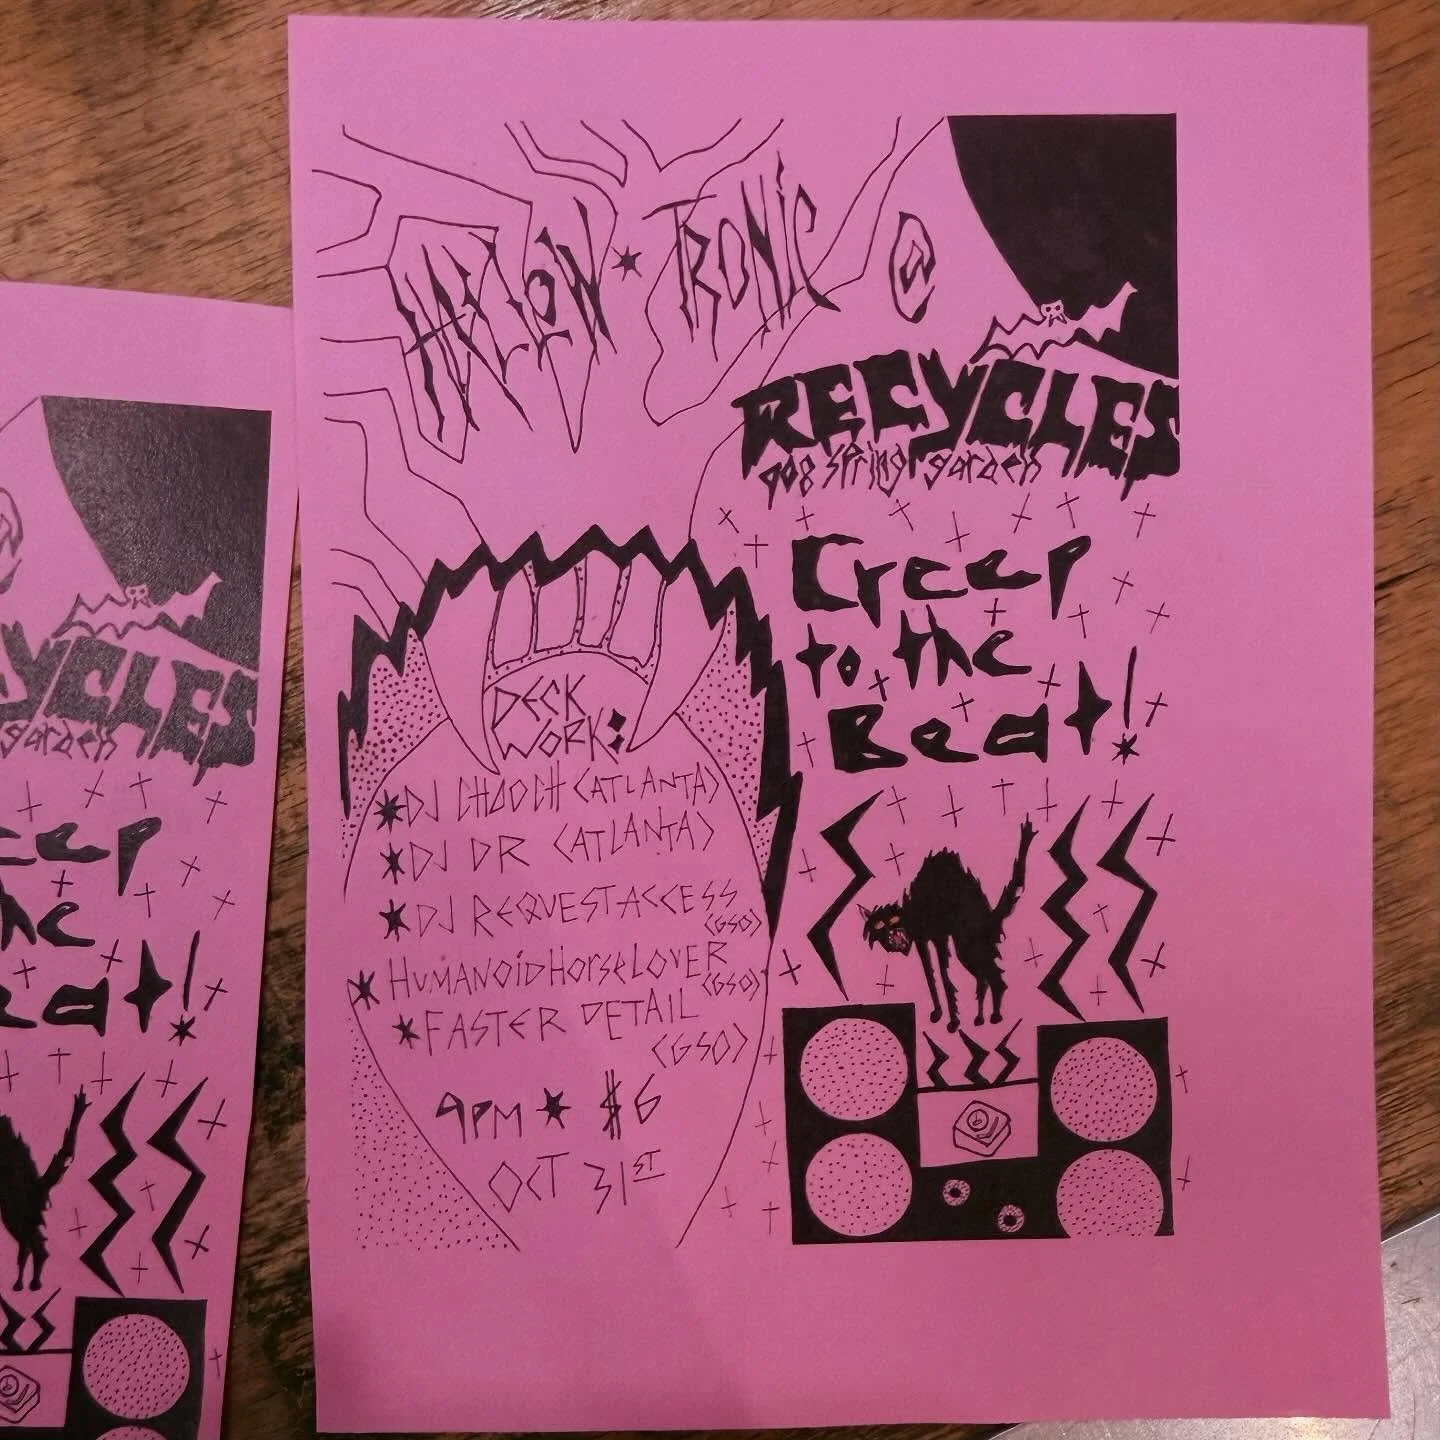 HALLOW*TRONIC @
RECYCLES
908 spring garden
Creep
to the
Beat!
DECK
WORK:
*DJ CHOOCH (ATLANTA)
*DJ DR (ATLANTA)
*DJ REQUESTACCESS
(GSO)
*HUMANOIDHORSELOVER
(GSO)
*FASTER DETAIL
(GSO)
9PM * $6
OCT 31ST
YCLES
garden
eep
he
eat!